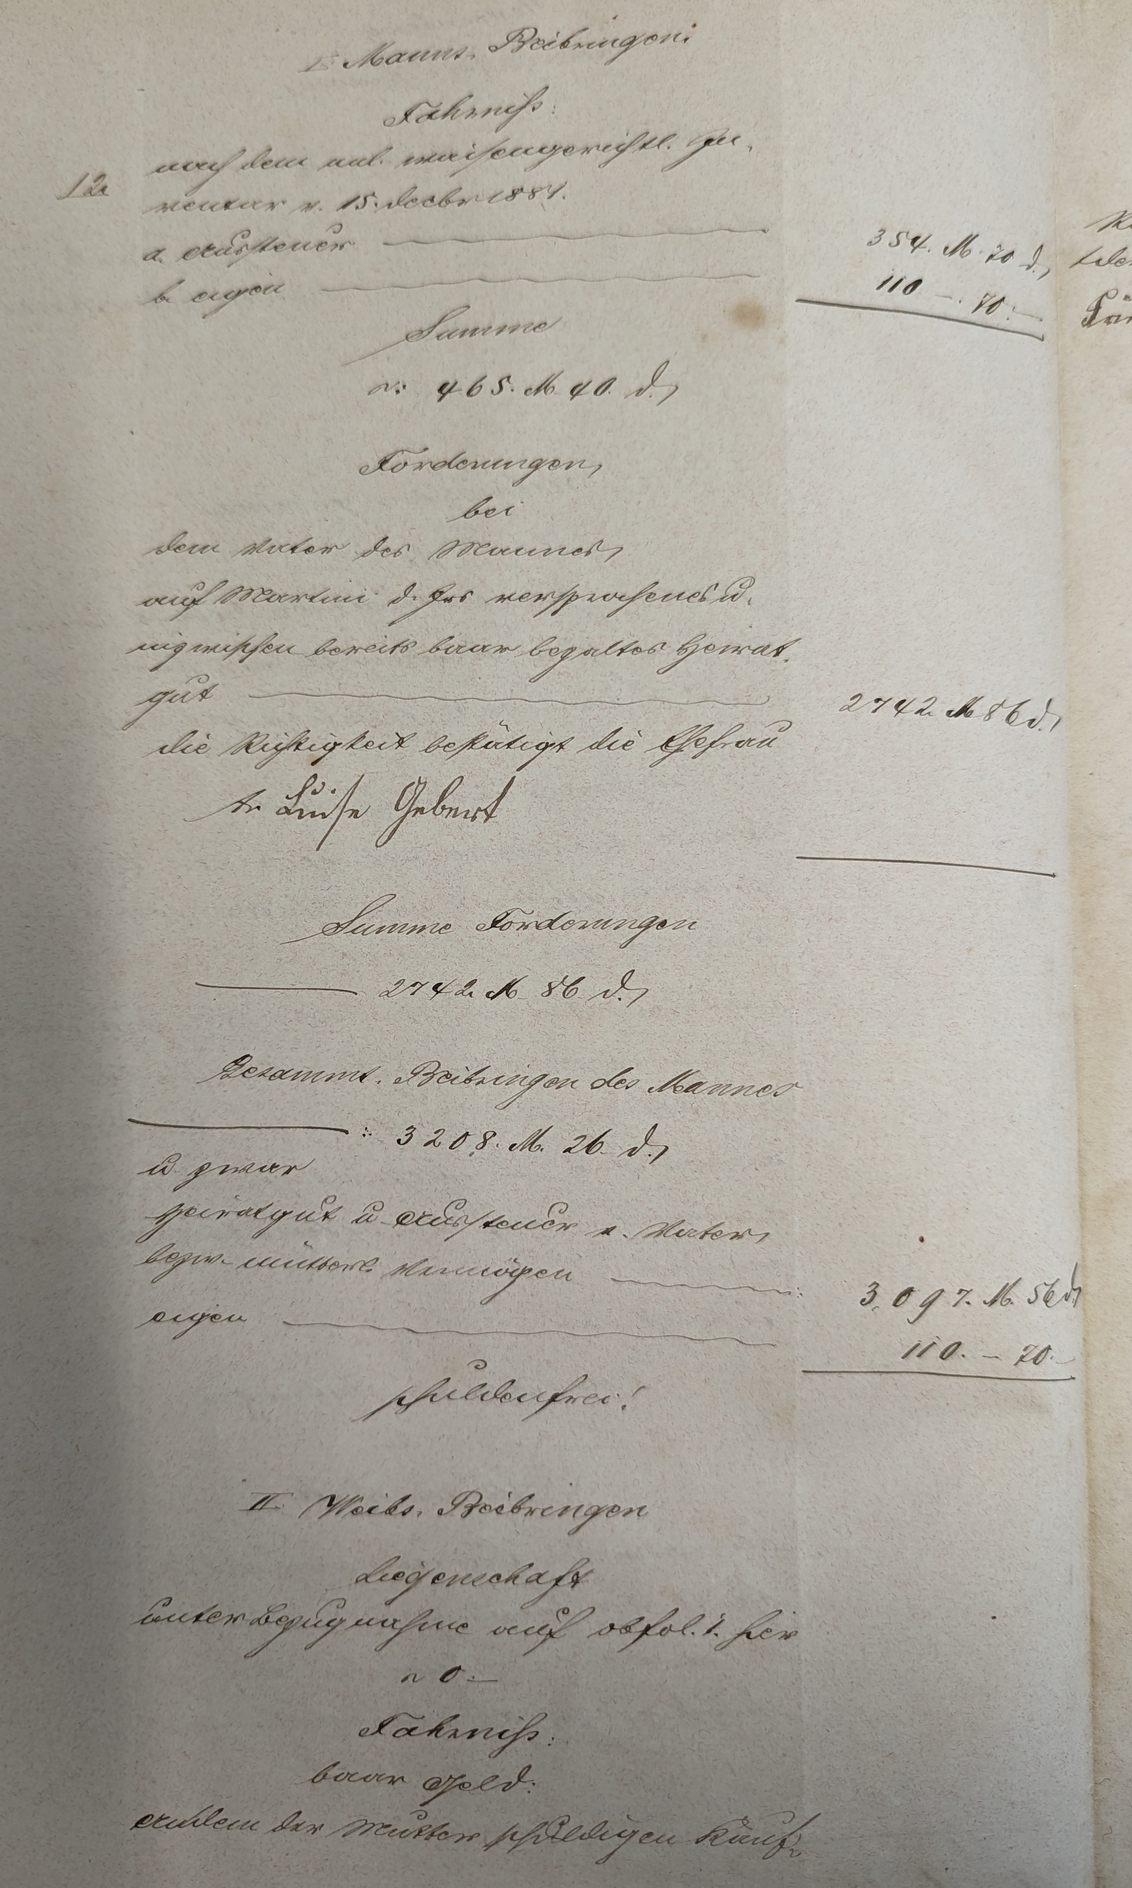 I. Manns-Beibringen:
Fahrniß:
12.
nach dem anl. waisengerichtl. In-
ventar v. 15. Decbr 1881.
a. Aussteuer 354. M. 70 d.,
b. eigen 110 — 70.—
Summe
∾: 465. M. 40. d.,
Forderungen,
bei
dem Vater des Mannes,
auf Martini d. Jrs versprochenes u.
inzwischen bereits baar bezaltes Heirat-
gut 2742. M 86 d.,
die Richtigkeit bestätigt die Ehefrau
Luise Gebert
Summe Forderungen
2742. M. 86. d.,
Gesammt-Beibringen des Mannes
: 3208. M. 26. d.,
u. zwar
Heiratgut u. Aussteuer v. Vater,
bezw. mütterl. Vermögen : 3,097. M. 56 d.,
eigen 110. — 70.—
schuldenfrei!
II. Weibs-Beibringen
Liegenschaft
unter Bezugnahme auf obfol. 1. hier
∾ 0.—
Fahrniß:
baar Geld:
An dem der Mutter schuldigen Kauf-